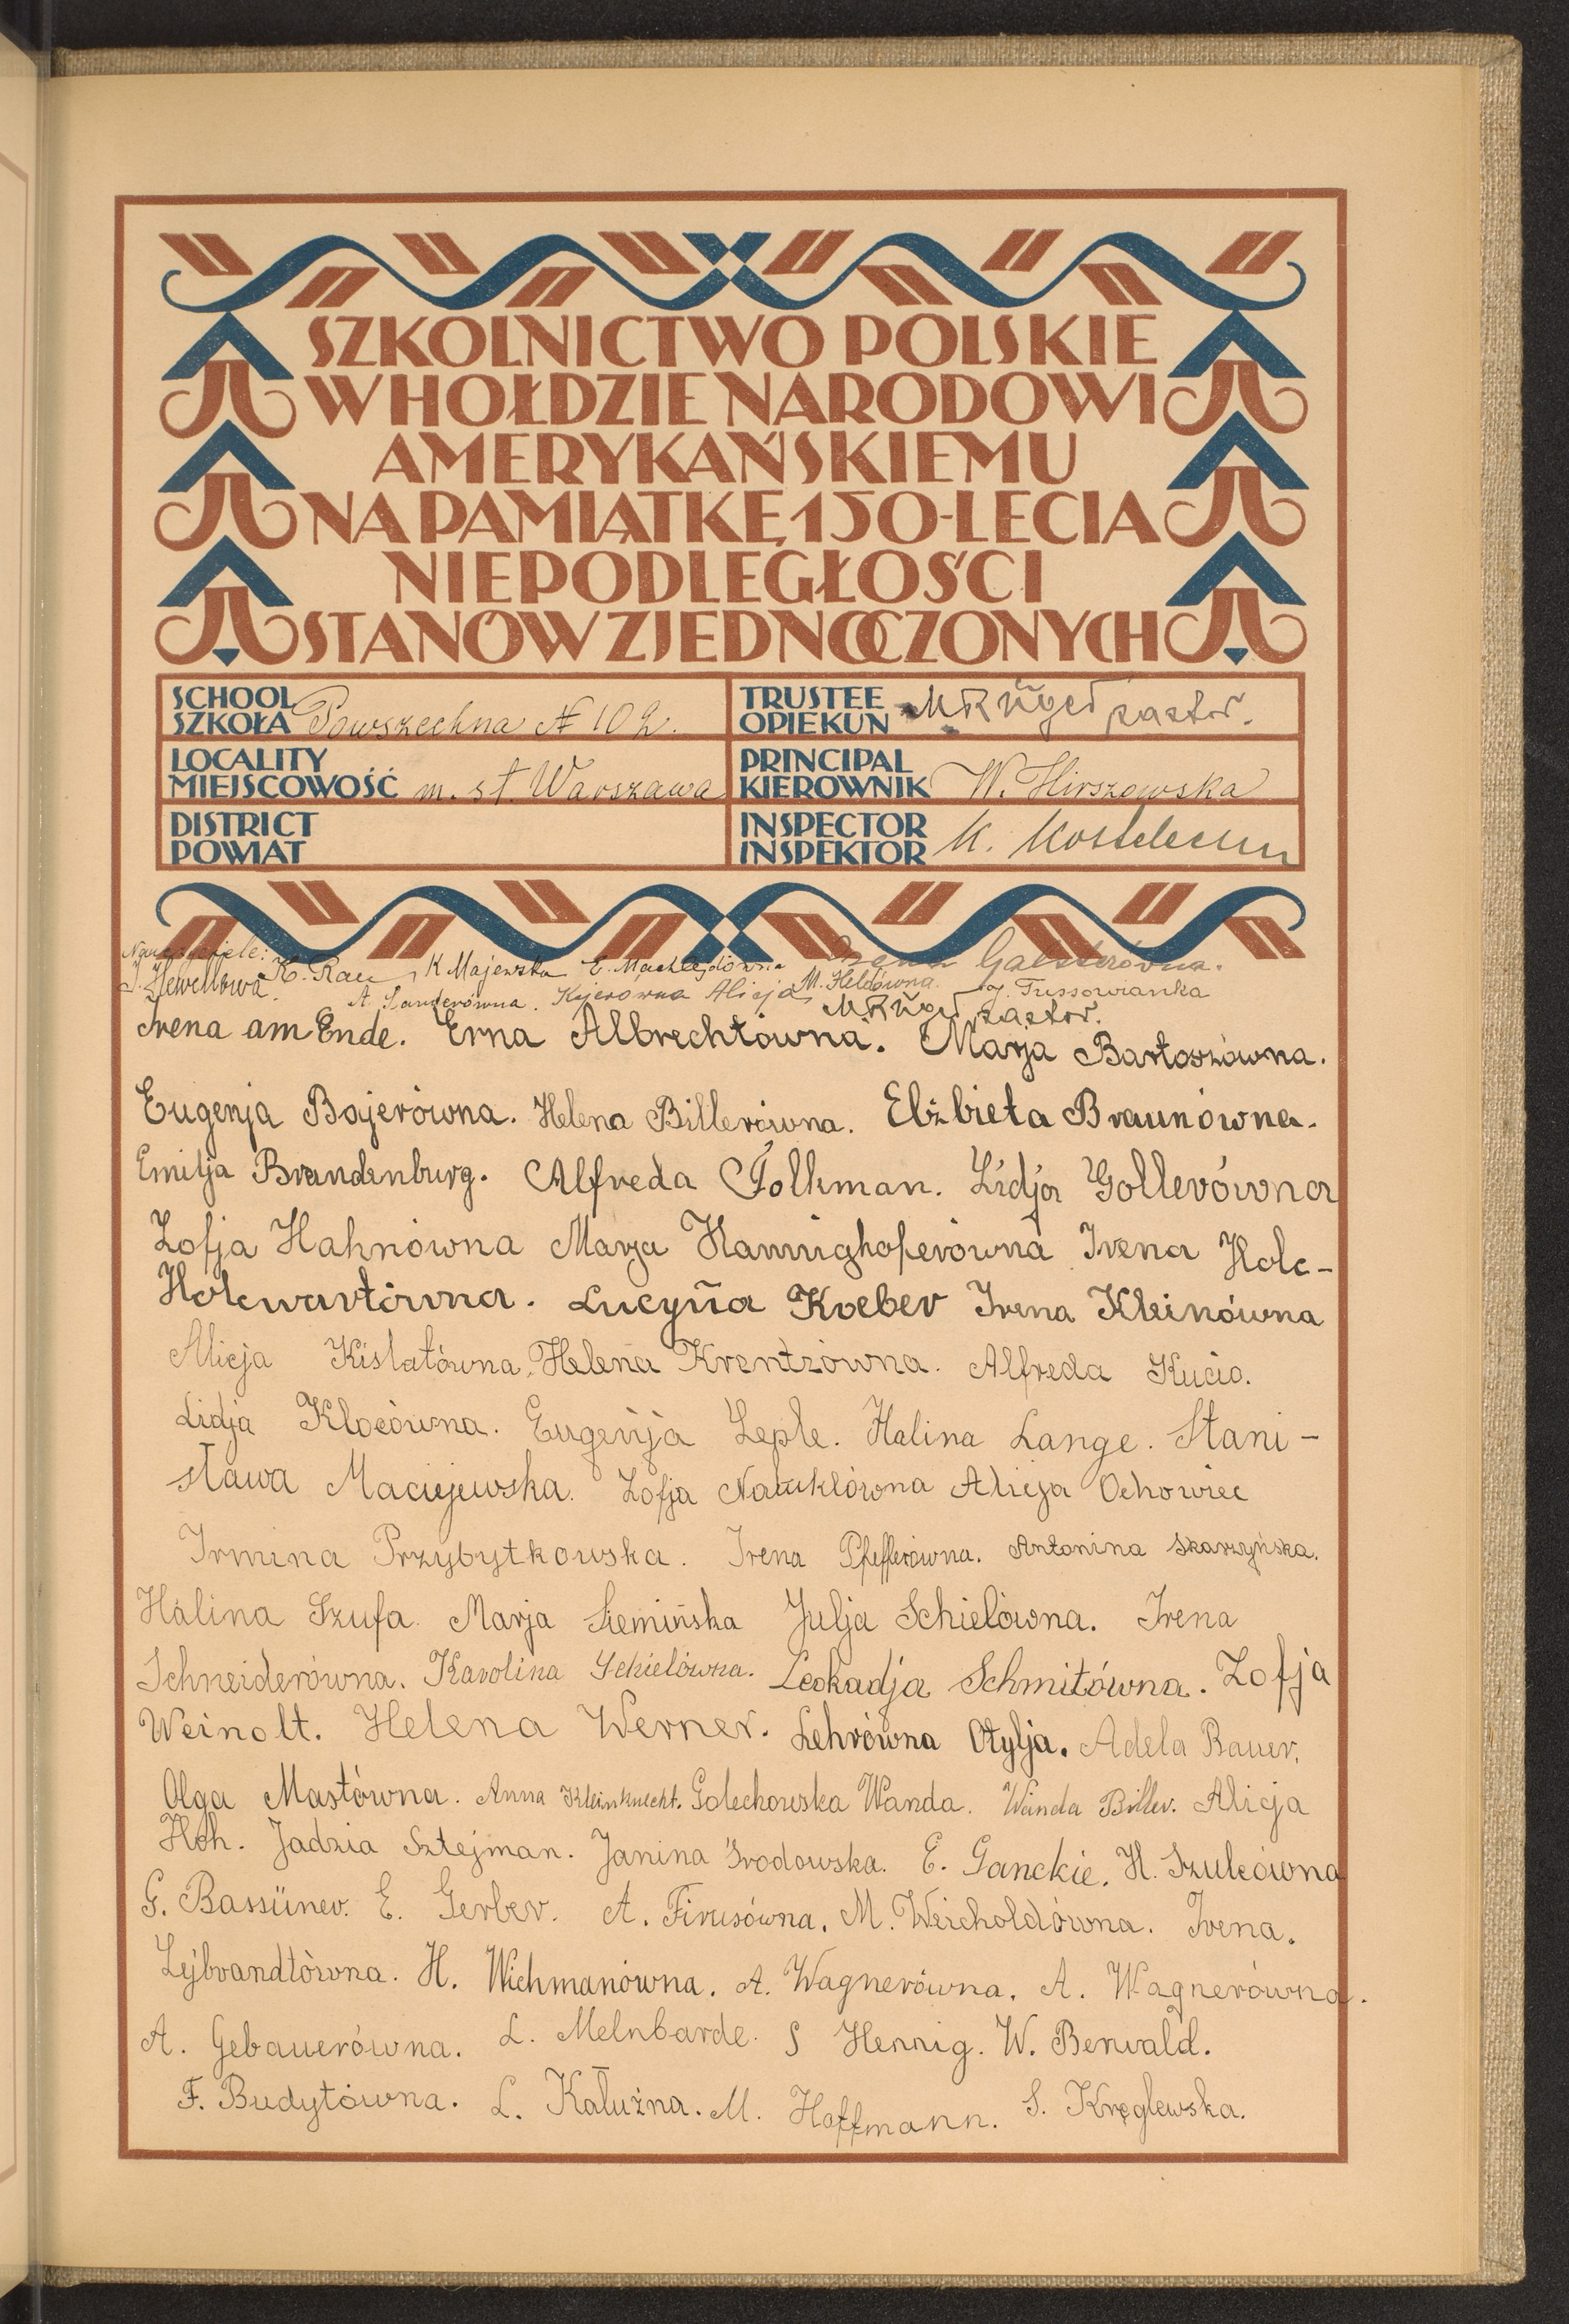 SZKOLNICTWO POLSKIE
W HOŁDZIE NARODOWI
AMERYKAŃSKIEMU
NA PAMIĄTKĘ 150-LECIA
NIEPODLEGŁOŚCI
STANÓW ZJEDNOCZONYCH
SCHOOL
SZKOŁA Powszechna № 102.
TRUSTEE
OPIEKUN pastor.
LOCALITY
MIEJSCOWOŚĆ m. st. Warszawa
PRINCIPAL
KIEROWNIK W. Hirszowska
DISTRICT
POWIAT
INSPECTOR
INSPEKTOR K.
Nauczyciele: K. Rau, K Majewska E. Machlejdówna Galsterówna.
A. Sanderówna. Kijerówna Alicja M. Heldówna. J. Tussowianka
pastor.
Irena am Ende. Erna Albrechtówna. Marja Bartoszówna.
Eugenja Bajerówna. Helena Billerówna. Elżbieta Braunówna.
Emilja Brandenburg. Alfreda Folkman. Lidja Gollerówna
Zofja Hahnówna Marja Irena Holc-
Holcwartówna. Lucyna Koeber Irena Kleinówna
Alicja Kislatówna. Helena Krentzówna. Alfreda Kucio.
Lidja Klocówna. Eugenja Leple. Halina Lange. Stani-
sława Maciejewska. Zofja Alicja Ochowiec
Irmina Przybytkowska. Irena Pfefferówna. Antonina Skarzyńska.
Halina Szufa. Marja Siemińska Julja Schielówna. Irena
Schneiderówna. Karolina Schielówna. Leokadja Schmitówna. Zofja
Weinolt. Helena Werner. Lehrówna Otylja. Adela Bauer.
Olga Mastówna. Anna Kleinknecht. Golechowska Wanda. Wanda Biller. Alicja
Hoh. Jadzia Sztejman. Janina Środowska. E. Ganckie. H. Szulcówna
G. Bassüner. E. Gerber. A. Firusówna. M. Weicholdówna. Irena.
Lejbrandtówna. H. Wichmanówna. A. Wagnerówna. A. Wagnerówna.
A. Gebauerówna. L. Melnbarde. S Hennig. W. Berwald.
F. Budytówna. L. Kałużna. M. Hoffmann. S. Kręglewska.